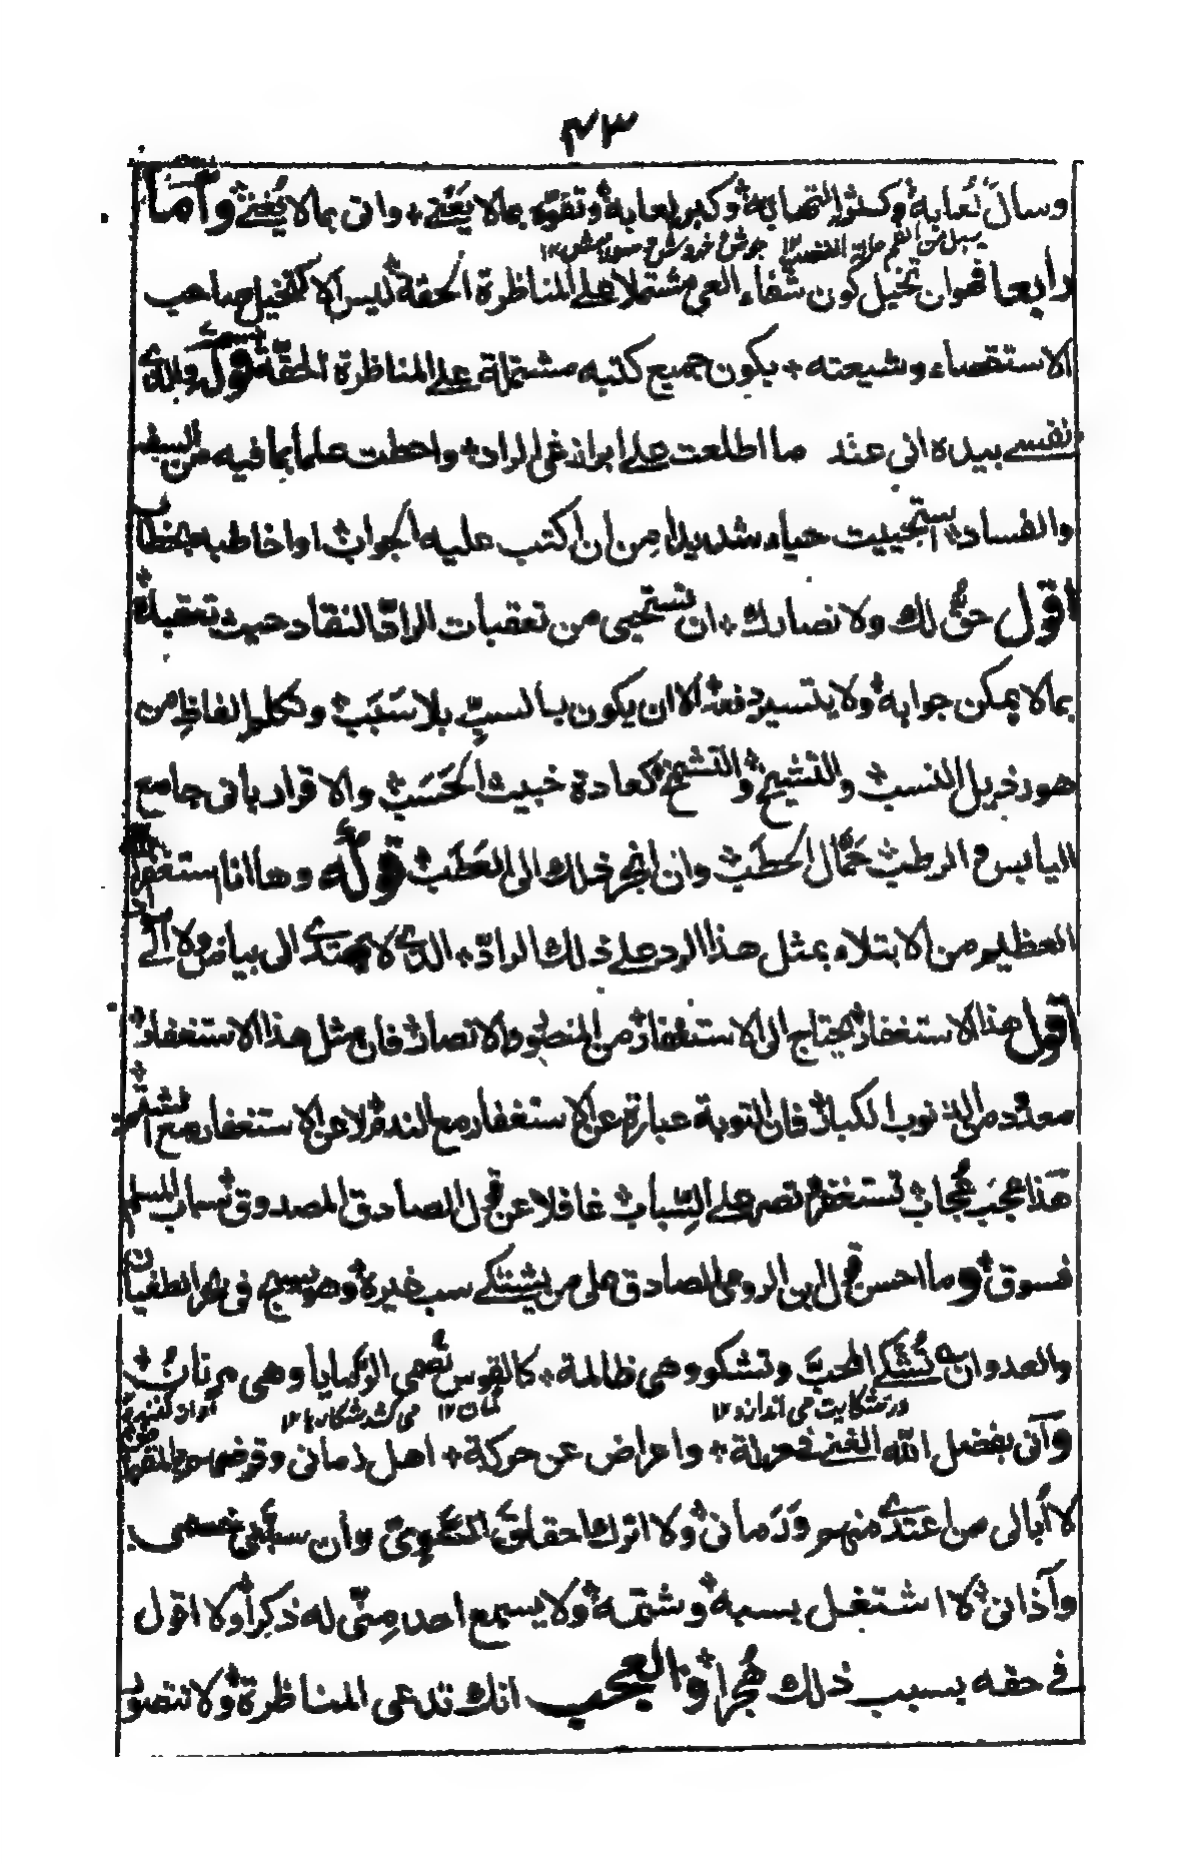 ۴۳
وسال لُعابه وكثر التهابه وكبر لعابه وتفوّه بمالا يَعْنى واتى بمالا يُغنى واما
يسيل من الفم جوش و خروش و سوزش ١٢
رابعا فهو ان تخيل كون شفاء العى مشتملا على المناظرة الحقة ليس الا كتخيل صاحب
الاستقصاء وشيعته يكون جميع كتبه مشتملة على المناظرة الحقة قوله والذى
نفسى بيده انى عند ما اطلعت على ابراز غى الراد واحطت علما بما فيه من السفه
والفساد استحييت حياء شديدا من ان اكتب عليه الجواب او اخاطبه بخطاب
اقول حق لك ولا نصارك ان تستحيى من تعقبات الرادّ النقاد حيث تعقبك
بما لا يمكن جوابه ولا يتيسر دفعه الا ان يكون بالسبّ بلا سَبَب وتكلم الفاظ من
هو رذيل النسب والتشيخ والتشمخ كعادة خبيث الحَسَب والاقرار بانى جامع
اليابس والرطب حَمّال الحطب وان انجر ذلك الى العَطَب قوله وها انا استغفر الله
العظيم من الابتلاء بمثل هذا الرد على ذلك الرادّ الذى لا يهتدى الى بياض ولا الى سواد
اقول هذا الاستغفار يحتاج الى الاستغفار من المنصور والانصار فان مثل هذا الاستغفار
معدود من الذنوب الكبار فان التوبة عبارة عن الاستغفار مع الندم لا عن الاستغفار مع الشتم
هذا عجب عُجاب تستغفر وتصر على السِّباب غافلا عن قول الصادق المصدوق سباب المسلم
فسوق وما احسن قول ابن الرومى الصادق على من يشتكى سب غيره وهو يسبح فى بحر الطغيان
والعدوان تُشكى المحبَّ وتشكو وهى ظالمة كالقوس تُصمى الرمايا وهى مرنان
در شكايت مى اندازد ١٢ كمان ١٢ مى كشد شكار را ١٢ آواز كننده
وانى بفضل الله الغنى واعراض عن حركة اهل زمانى وقرضهم
لا اُبالى من اعتدى منهم وذَمانى ولا اترك احقاق الحق وان سبّنى خصمى
وآذانى لا اشتغل بسبه وشتمه ولا يسمع احد مِنّى له ذكرا ولا اقول
فى حقه بسبب ذلك هُجرا والعجب انك تدعى المناظرة ولا تتصور